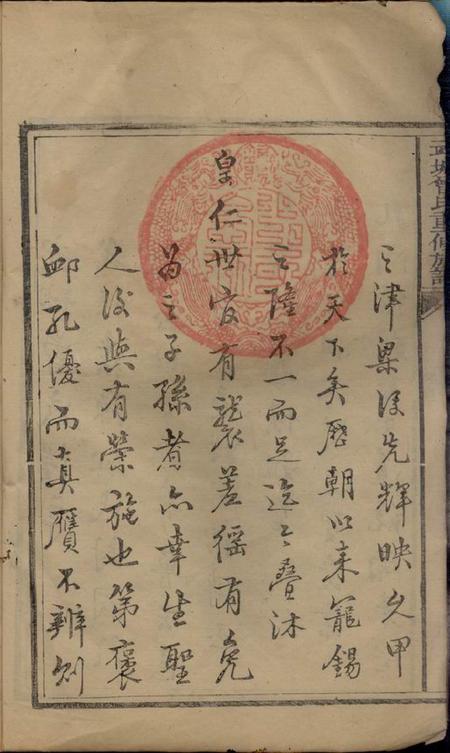 之津梁後先輝映久甲
於天下矣歷朝以来寵錫
之隆不一而足迄今疊沐
皇仁世官有襲差徭有免
為之子孫者亦幸生聖
人後與有榮施也第褒
卹孔優而真贋不辨則
武城曾氏重修族譜